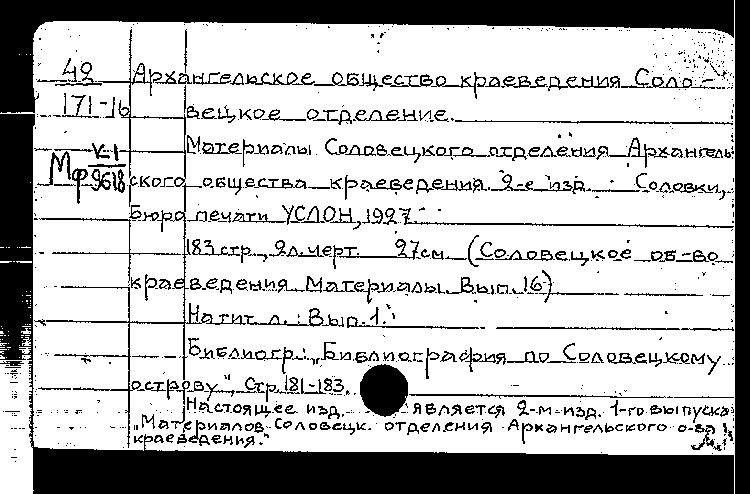 42
171-16
Архангельское общество краеведения Соло-
вецкое отделение.
Материалы Соловецкого отделения Архангель
ского общества краеведения. 2-е изд. Соловки,
V-1
Мф 9618
бюро печати УСЛОН, 1927.
183 стр., 2 л. черт. 27 см. (Соловецкое об-во
краеведения. Материалы. Вып. 16)
На тит. л.: Вып. 1.
Библиогр.: „Библиография по Соловецкому
острову", Стр. 181-183.
Настоящее изд. является 2-м изд. 1-го выпуска
„Материалов Соловецк. отделения Архангельского о-ва
краеведения."